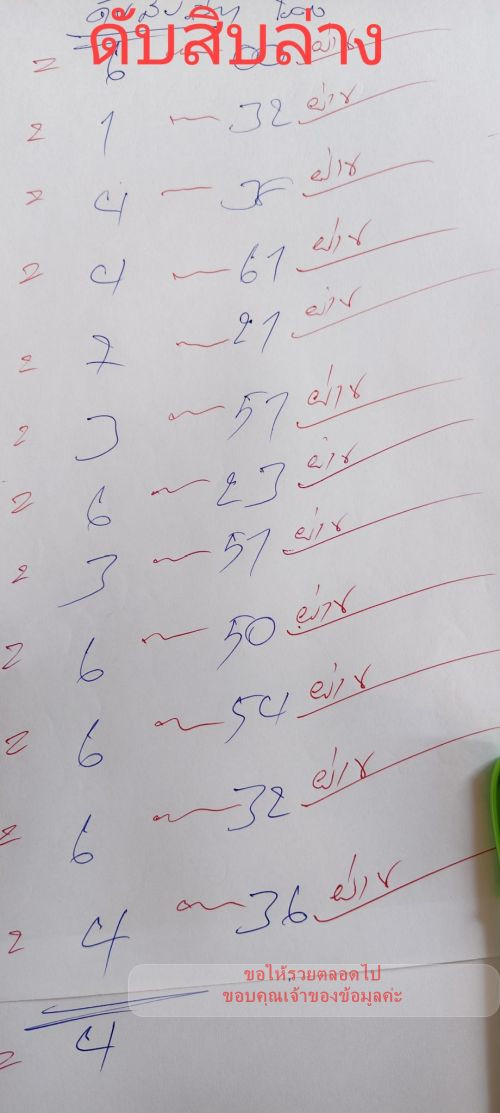 ดับสิบล่าง
2 6 ผ่าน
2 1 — 32 ผ่าน
2 4 — 38 ผ่าน
2 4 — 61 ผ่าน
2 7 — 21 ผ่าน
2 3 — 51 ผ่าน
2 6 — 23 ผ่าน
2 3 — 51 ผ่าน
2 6 — 50 ผ่าน
2 6 — 54 ผ่าน
2 6 — 32 ผ่าน
2 4 — 36 ผ่าน
ขอให้รวยตลอดไป
ขอบคุณเจ้าของข้อมูลค่ะ
2 4